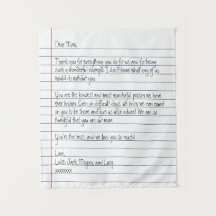 Dear Mum,
Thank you for everything you do for us and for being
such a wonderful strength. I don't know what any of us
would do without you.
You are the kindest and most wonderful person we have
ever known. Even on difficult days, all of us can count
on you to be there and give us wise advice. We are so
thankful that you are our mum.
You're the best, and we love you so much!
Love,
Luke, Jack, Megan, and Lucy
xxxxxxxx